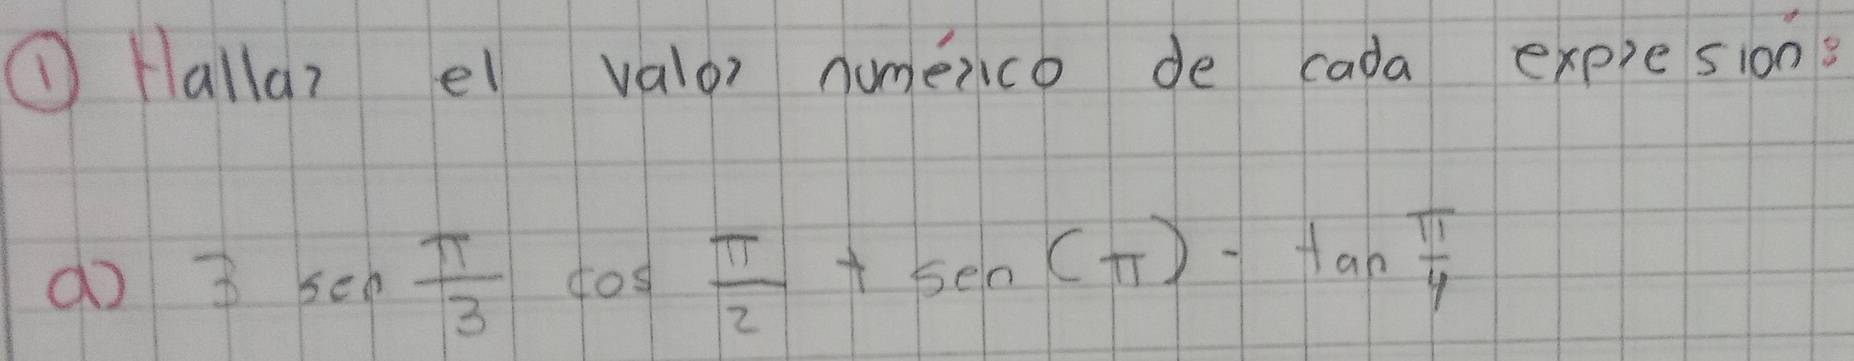 ① Hallar el valor numérico de cada expresión:
a) 3 sen π/3 cos π/2 + sen (π) - tan π/4